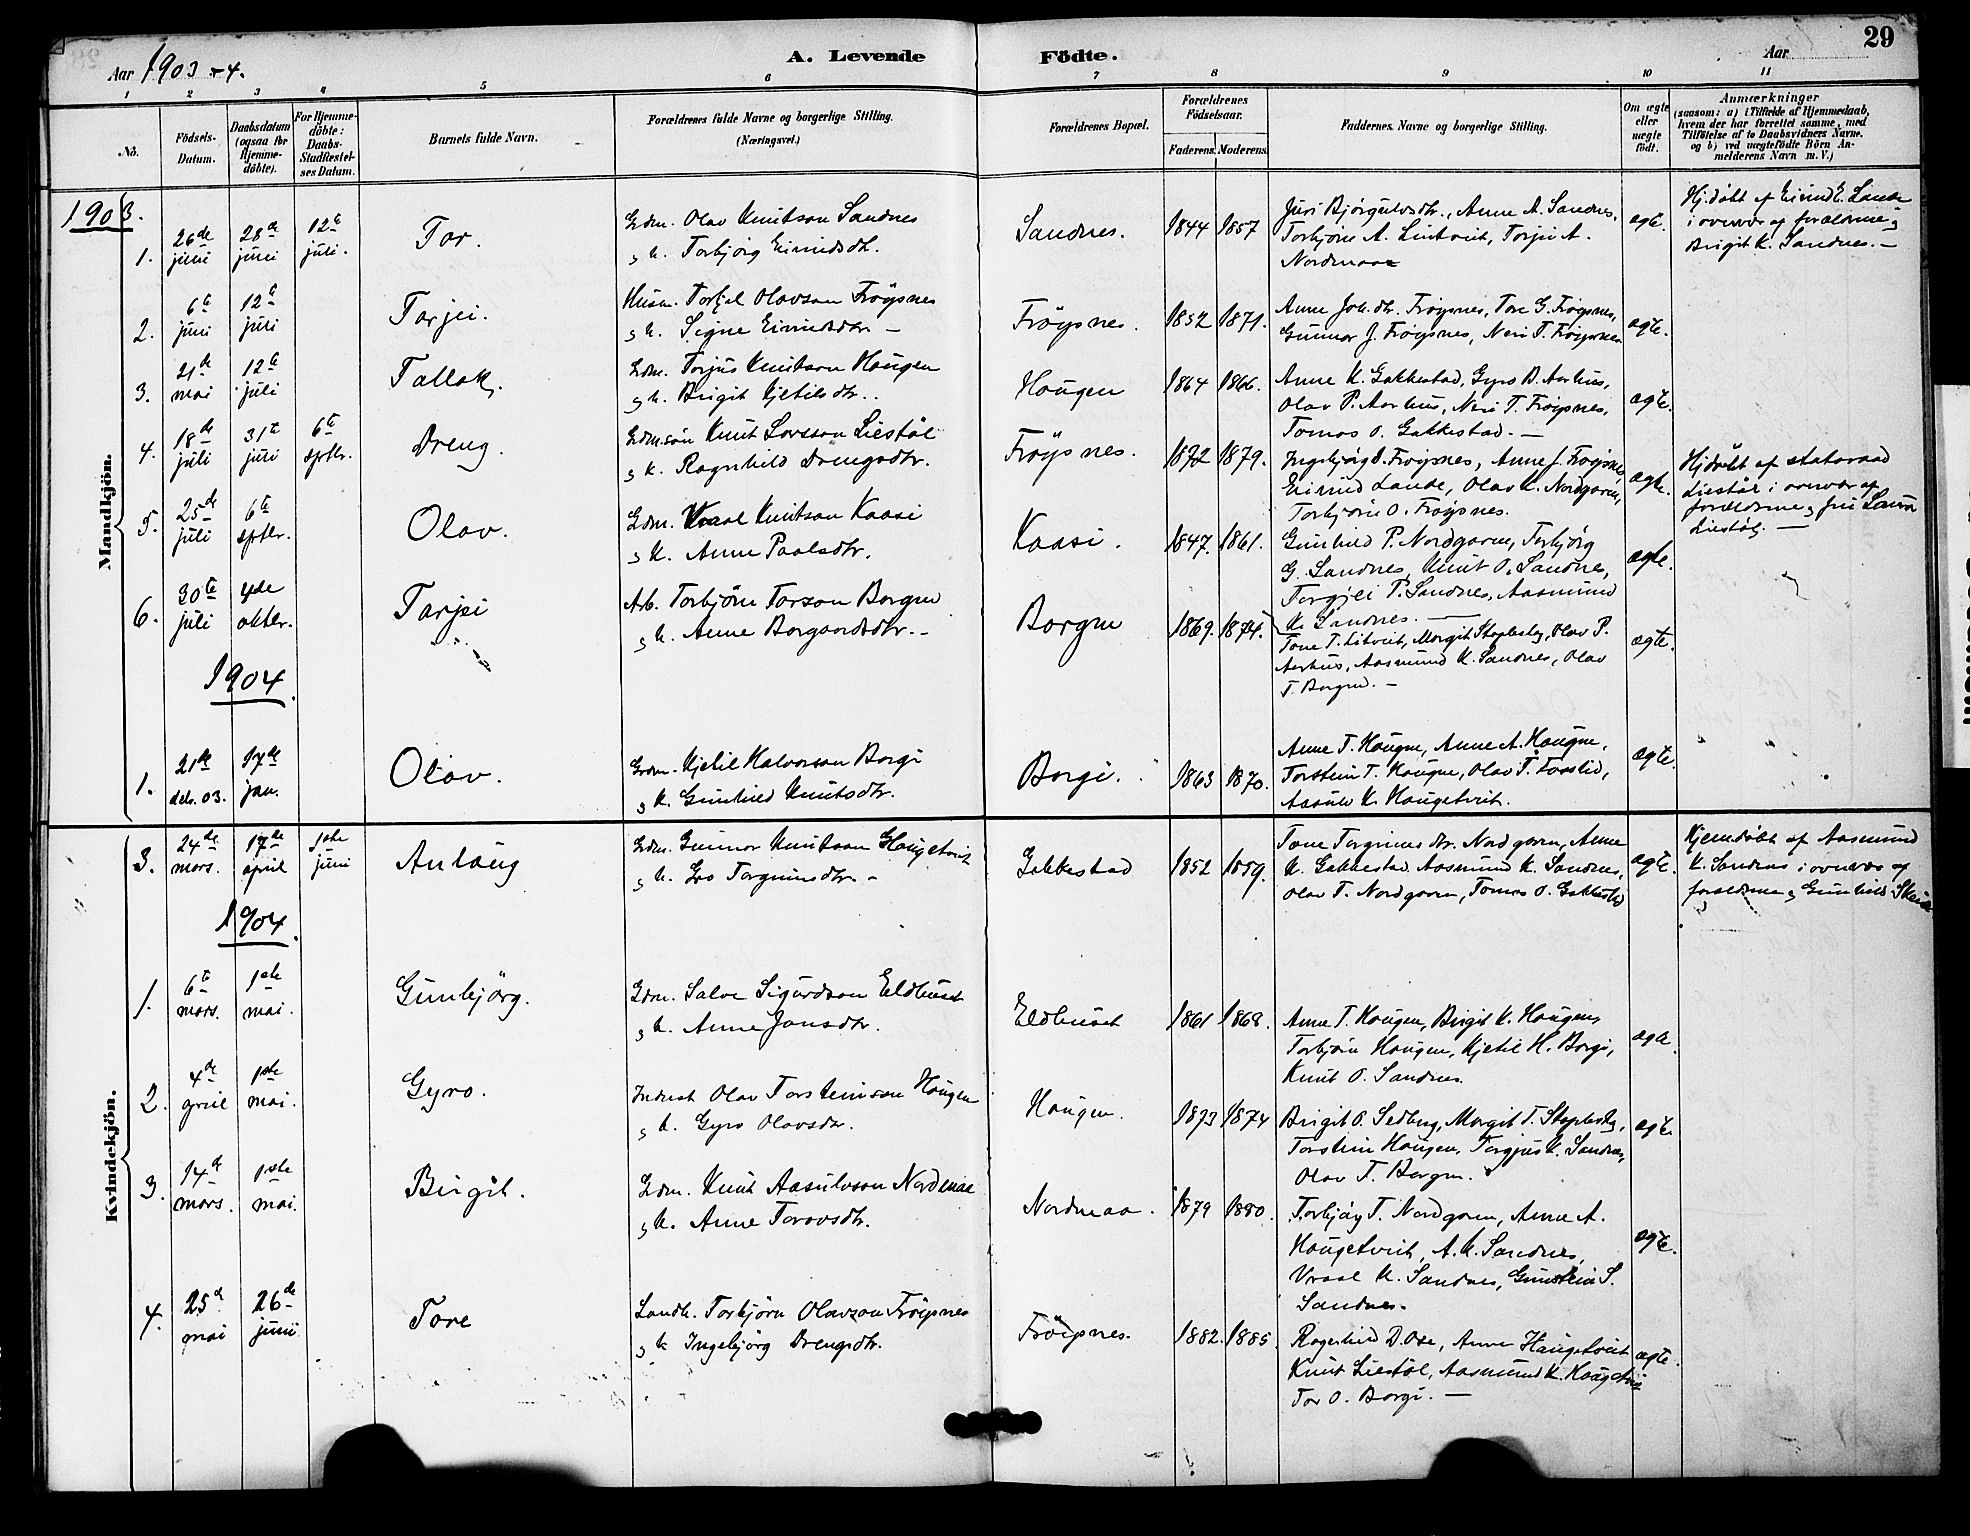 29
Aar 1903-4.
A. Levende Födte.
Aar
1 2 3 4 5 6 7 8 9 10 11
Nö.
Födsels-Datum.
Daabsdatum (ogsaa for Hjemme-döbte).
For Hjemme-döbte: Daabs-Stadfæstel-ses Datum.
Barnets fulde Navn.
Forældrenes fulde Navne og borgerlige Stilling. (Næringsvei.)
Forældrenes Bopæl.
Forældrenes Födselsaar.
Faderens. Moderens.
Faddernes Navne og borgerlige Stilling.
Om ægte eller uægte födt.
Anmærkninger
(saasom: a) i Tilfælde af Hjemmedaab, hvem der har forrettet samme, med Tilföielse af to Daabsvidners Navne. og b) ved uægtefödte Börn An-melderens Navn m. V.)
Mandkjön.
1903.
1. 26de juni 28de juni 12te juli. Tor.
Gdm. Olav Knutson Sandnes
og k. Torbjörg Eivindsdtr.
Sandnes. 1844 1857
Juri Björgulvsdtr., Anne A. Sandnes,
Torbjörn A. Lintveit, Torjei A.
Nordmaa
ægte.
Hj.döbt af Eivind E. Lande
i overvær af forældrene og
Birgit K. Sandnes.
2. 6te juni 12te juli Tarjei.
Husm. Torkjel Olavson Fröysnes
og k. Signe Eivindsdtr
Fröysnes. 1852 1871.
Anne Joh.dtr. Fröysnes, Tore G. Fröysnes,
Gunnar J. Fröysnes, Neri T. Fröysnes
ægte.
3. 21de mai 12te juli Tallak.
Gdm. Torjus Knutson Haugen
og k. Birgit Kjetilsdtr.
Haugen 1864 1866.
Anne K. Gakkestad, Gyro D. Aarhus,
Olav P. Aarhus, Neri T. Fröysnes,
Tomas O. Gakkestad.
ægte.
4. 18de juli 31te juli 6te septbr. Dreng.
Gdm.sön Knut Lavsson Liestöl
og k. Ragnhild Drengsdtr.
Fröysnes. 1872 1879.
Ingebjörg D. Fröysnes, Anne J. Fröysnes,
Eivind Lande, Olav K. Nordgaren,
Torbjörn O. Fröysnes.
ægte.
Hj.döbt af statsraad
Liestöl i overvær af
forældrene og fru Laura
Liestöl.
5. 25de juli 6te septbr. Olav.
Gdm. Vraal Knutson Kaasi
og k. Anne Paalsdtr.
Kaasi. 1847. 1861.
Gunhild P. Nordgaren, Torbjörg
G. Sandnes, Knut O. Sandnes,
Torgjei P. Sandnes, Aasmund
K. Sandnes.
ægte.
6. 30te juli 4de oktbr. Tarjei
Arb. Torbjörn Torson Borgen
og k. Anne Borgaardsdtr.
Borgen 1869. 1874.
Tone T. Litveit, Margit Stapleste, Olav P.
Aarhus, Aasmund K. Sandnes, Olav
T. Borgen.
ægte.
1904.
1. 21de debr. 03. 17de jan. Olav.
Gdm. Kjetil Halvorson Borgi
og k. Gunhild Knutsdtr.
Borgi. 1863 1870.
Anne T. Haugen, Anne A. Haugen,
Torstein T. Haugen, Olav T.
Aasulv K. Haugetveit.
ægte.
Kvindekjön.
3. 24de mars. 17de april 1ste juni Anlaug
Gdm. Gunnar Knutson Haugetveit
og k. Gro Torgrimsdtr.
Gakkestad 1852 1859.
Tone Torgrimsdtr. Nordgaren, Anne
K. Gakkestad, Aasmund K. Sandnes,
Olav T. Nordgaren, Tomas O. Gakkestad
ægte.
Hjemdöbt af Aasmund
K. Sandnes i overvær af
forældrene og Gunhild
1904.
1. 6te mars. 1ste mai. Gunbjörg.
Gdm. Salve Sigurdson Eldhuset
og k. Anne Jonsdtr.
Eldhuset 1861 1868.
Anne T. Haugen, Birgit K. Haugen,
Torbjörn Haugen, Kjetil H. Borgi,
Knut O. Sandnes.
ægte.
2. 4de april 1ste mai. Gyro.
Inderst Olav Torsteinson Haugen
og k. Gyro Olavsdtr.
Haugen. 1873 1874
Birgit O. Sedberg, Margit T. Stapleste,
Torstein Haugen, Torgjus K. Sandnes,
Olav T. Borgen.
ægte.
3. 14de mars. 1ste mai. Birgit.
Gdm. Knut Aasulvson Nordmaa
og k. Anne Torovsdtr.
Nordmaa. 1879 1880.
Torbjörg T. Nordgaren, Anne A.
Haugetveit, A. K. Sandnes,
Vraal K. Sandnes, Gunstein S.
Sandnes.
ægte.
4. 25de mai 26de juni Tore
Landh. Torbjörn Olavson Fröysnes
og k. Ingebjörg Drengsdtr.
Fröysnes. 1882. 1885.
Ragnhild D. Ose, Anne Haugetveit
Knut Liestöl, Aasmund K. Haugetveit
Tor O. Borgi.
ægte.